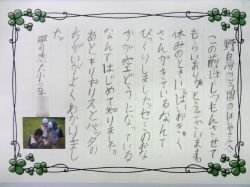 野鳥河こ公園のはやさんへ
この前はしつもんさせて
もらいありがとうございます。
休みのときいっぱいおきゃく
さんがきているなんて
びっくりしました。セミのおな
かが空どうになっている
なんてはじめて知りました。
あとキリギリスとバッタの
ちがいがよくわかりまし
た。